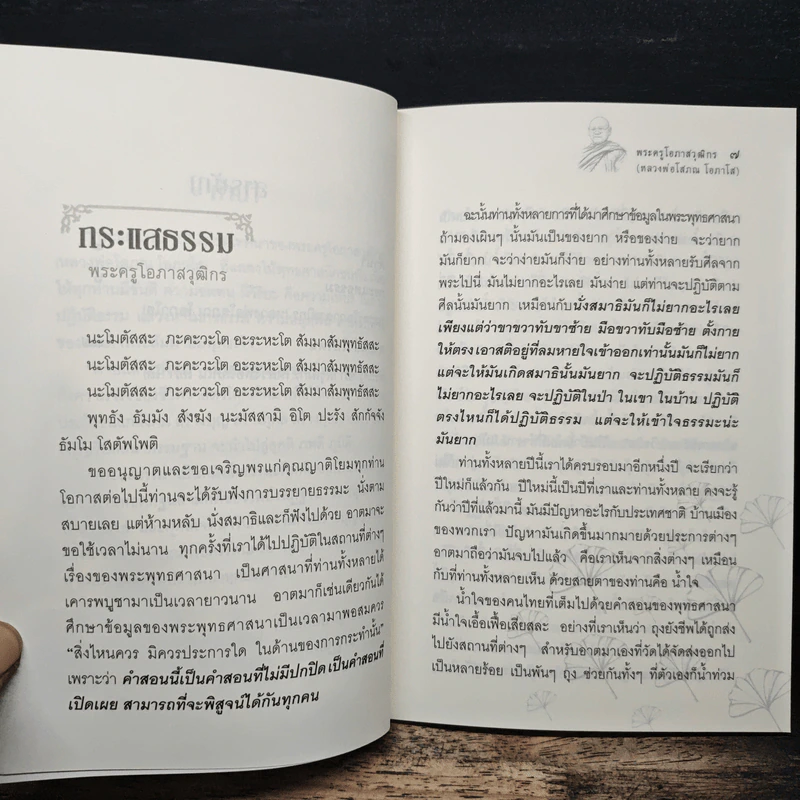 กระแสธรรม
พระครูโอภาสวุฒิกร
นะโมตัสสะ ภะคะวะโต อะระหะโต สัมมาสัมพุทธัสสะ
นะโมตัสสะ ภะคะวะโต อะระหะโต สัมมาสัมพุทธัสสะ
นะโมตัสสะ ภะคะวะโต อะระหะโต สัมมาสัมพุทธัสสะ
พุทธัง ธัมมัง สังฆัง นะมัสสามิ อิโต ปะรัง สักกัจจัง
ธัมโม โสตัพโพติ
ขออนุญาตและขอเจริญพรแก่คุณญาติโยมทุกท่าน
โอกาสต่อไปนี้ท่านจะได้รับฟังการบรรยายธรรมะ นั่งตาม
สบายเลย แต่ห้ามหลับ นั่งสมาธิและก็ฟังไปด้วย อาตมาจะ
ขอใช้เวลาไม่นาน ทุกครั้งที่เราได้ไปปฏิบัติในสถานที่ต่างๆ
เรื่องของพระพุทธศาสนา เป็นศาสนาที่ท่านทั้งหลายได้
เคารพบูชามาเป็นเวลายาวนาน อาตมาก็เช่นเดียวกันได้
ศึกษาข้อมูลของพระพุทธศาสนาเป็นเวลามาพอสมควร
"สิ่งไหนควร มิควรประการใด ในด้านของการกระทำนั้น"
เพราะว่า คำสอนนี้เป็นคำสอนที่ไม่มีปกปิด เป็นคำสอนที่
เปิดเผย สามารถที่จะพิสูจน์ได้กันทุกคน
พระครูโอภาสวุฒิกร ๗
(หลวงพ่อโสภณ โอภาโส)
ฉะนั้นท่านทั้งหลายการที่ได้มาศึกษาข้อมูลในพระพุทธศาสนา
ถ้ามองเผินๆ นั้นมันเป็นของยาก หรือของง่าย จะว่ายาก
มันก็ยาก จะว่าง่ายมันก็ง่าย อย่างท่านทั้งหลายรับศีลจาก
พระไปนี่ มันไม่ยากอะไรเลย มันง่าย แต่ท่านจะปฏิบัติตาม
ศีลนั้นมันยาก เหมือนกับนั่งสมาธิมันก็ไม่ยากอะไรเลย
เพียงแต่ว่าขาขวาทับขาซ้าย มือขวาทับมือซ้าย ตั้งกาย
ให้ตรง เอาสติอยู่ที่ลมหายใจเข้าออกเท่านั้นมันก็ไม่ยาก
แต่จะให้มันเกิดสมาธินั้นมันยาก จะปฏิบัติธรรมมันก็
ไม่ยากอะไรเลย จะปฏิบัติในป่า ในเขา ในบ้าน ปฏิบัติ
ตรงไหนก็ได้ปฏิบัติธรรม แต่จะให้เข้าใจธรรมะน่ะ
มันยาก
ท่านทั้งหลายปีนี้เราได้ครบรอบมาอีกหนึ่งปี จะเรียกว่า
ปีใหม่ก็แล้วกัน ปีใหม่นี้เป็นปีที่เราและท่านทั้งหลาย คงจะรู้
กันว่าปีที่แล้วมานี้ มันมีปัญหาอะไรกับประเทศชาติ บ้านเมือง
ของพวกเรา ปัญหามันเกิดขึ้นมากมายด้วยประการต่างๆ
อาตมาถือว่ามันจบไปแล้ว คือเราเห็นจากสิ่งต่างๆ เหมือน
กับที่ท่านทั้งหลายเห็น ด้วยสายตาของท่านคือ น้ำใจ
น้ำใจของคนไทยที่เต็มไปด้วยคำสอนของพุทธศาสนา
มีน้ำใจเอื้อเฟื้อเสียสละ อย่างที่เราเห็นว่า ถุงยังชีพได้ถูกส่ง
ไปยังสถานที่ต่างๆ สำหรับอาตมาเองที่วัดได้จัดส่งออกไป
เป็นหลายร้อย เป็นพันๆ ถุง ช่วยกันทั้งๆ ที่ตัวเองก็น้ำท่วม